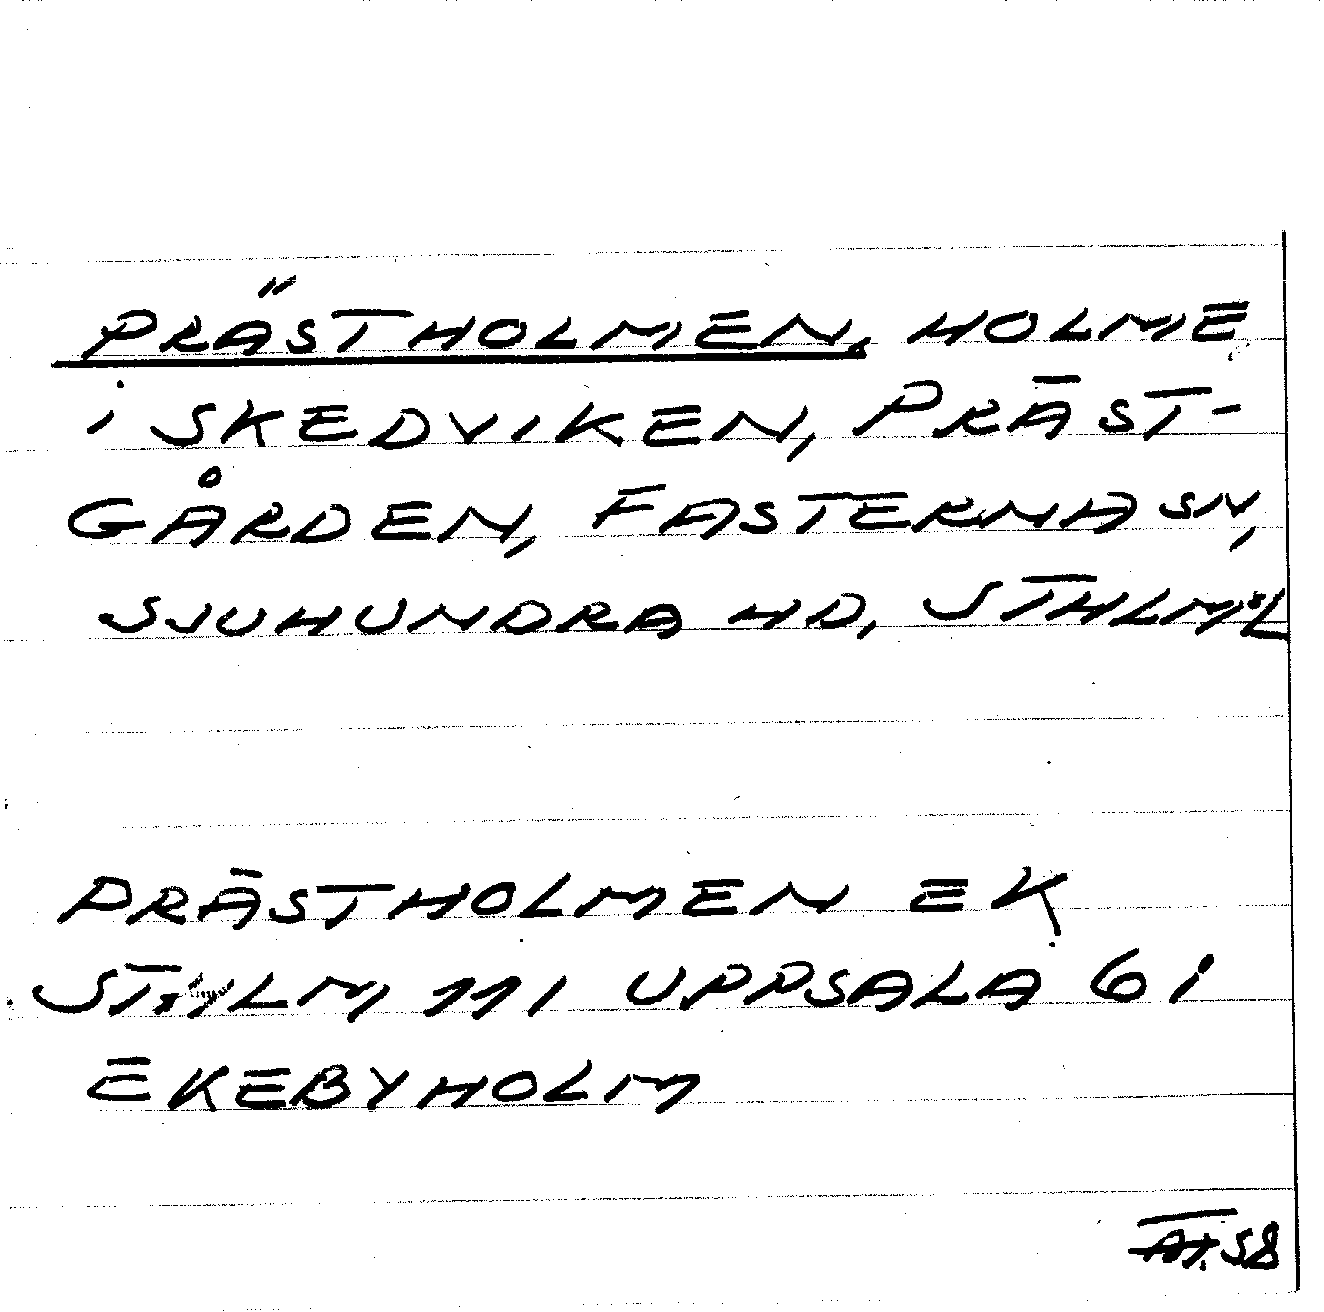 PRÄSTHOLMEN, HOLME
i SKEDVIKEN, PRÄST-
GÅRDEN, FASTERNA SN,
SJUHUNDRA HD, STHLMS L
PRÄSTHOLMEN EK
STHLM 111 UPPSALA 61
EKEBYHOLM
58